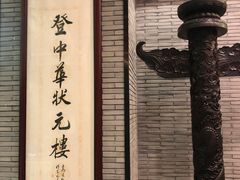 登中華狀元樓